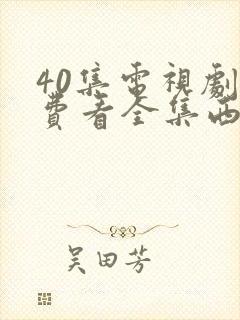 40集電視劇
費看全集西
吴田芳